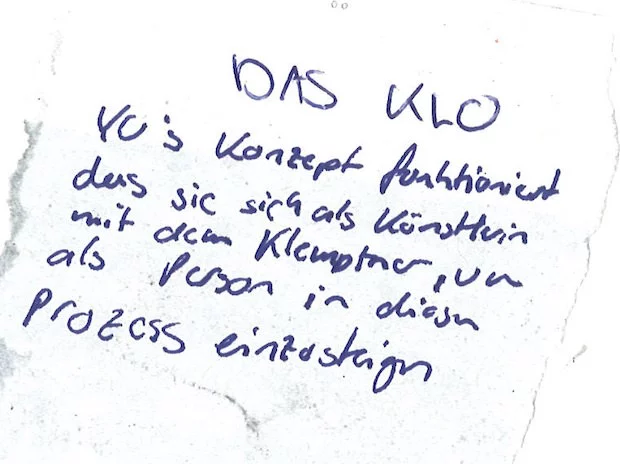 DAS KLO
YO's Konzept funktioniert
das sie sich als Künstlerin
mit dem Klemptner, um
als Person in diesen
Prozess einzusteigen